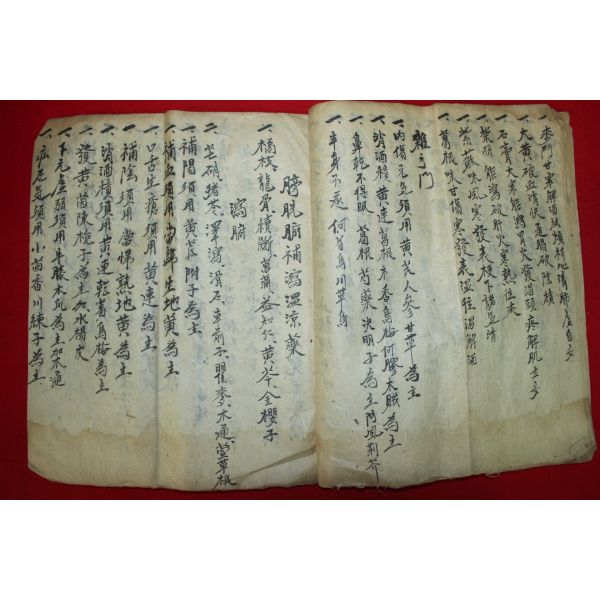 一、麥門甘寒解渴
一、大黃破血消快直腸破除積
一、石膏大寒能瀉胃火發渴頭疼解肌
一、柴胡能瀉肝火寒熱往來
一、紫蘇味風寒發表梗下諸氣消
一、葛根味甘傷寒發表溫往渴解酒
雜方門
一、內傷元氣須用黃芪人參甘草為主
一、消酒積黃連葛根木香烏梅
一、鼻乾不得眠葛根芍藥決明子為主防風荊芥
一、半身不 何首烏川草烏
膀胱腑補瀉溫涼藥
一、橘核龍骨續斷萆薢益知仁黃芩金櫻子
瀉腑
二、芒硝猪苓澤瀉滑石車前子瞿麥木通萱草根
一、補陽須用黃芪附子為主
一、補血須用當歸生地黃為主
一、口舌生瘡須用黃連為主
一、補陰須用當歸熟地黃為主
一、消酒積須用黃連乾葛烏梅為主
一、發黃茵陳梔子為主加水楊皮
一、下元虛弱須用牛膝木瓜為主加木通
一、疝氣須用小茴香川練子為主